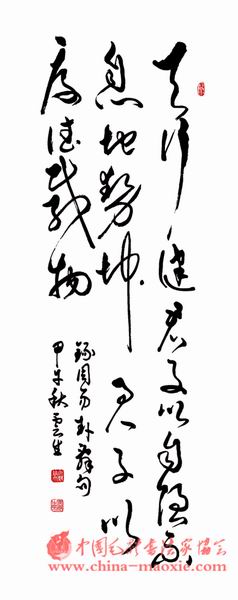 天行健君子以自强不
息地势坤君子以
厚德载物
录周易卦辞句
甲午秋云生
中国毛体书法家协会
www.china-maoxie.com